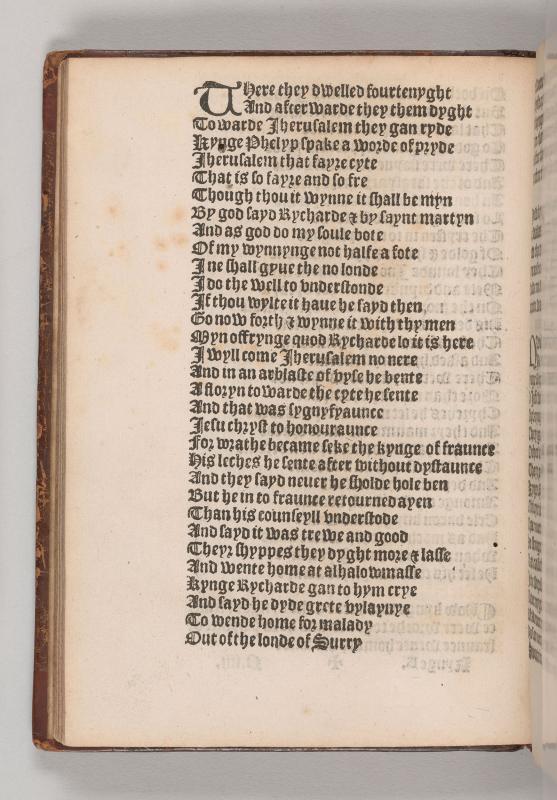 There they dwelled fourtenyght
And afterwarde they them dyght
Towarde Jherusalem they gan ryde
Kynge Phelyp spake a worde of pryde
Jherusalem that fayre cyte
That is so fayre and so fre
Though thou it wynne it shall be myn
By god sayd Rycharde & by saynt martyn
And as god do my soule bote
Of my wynnynge not halfe a fote
I ne shall gyue the no londe
I do the well to vnderstonde
If thou wylte it haue he sayd then
Go now forth & wynne it with thy men
Myn offrynge quod Rycharde lo it is here
I wyll come Jherusalem no nere
And in an arblaste of vyse he bente
A floryn towarde the cyte he sente
And that was sygnyfyaunce
Jesu chryst to honouraunce
For wrathe became seke the kynge of fraunce
His leches he sente after without dystaunce
And they sayd neuer he sholde hole ben
But he in to fraunce retourned ayen
Than his counseyll vnderstode
And sayd it was trewe and good
Theyr shyppes they dyght more & lasse
And wente home at alhalowmasse
Kynge Rycharde gan to hym crye
And sayd he dyde grete vylaynye
To wende home for malady
Out of the londe of Surry